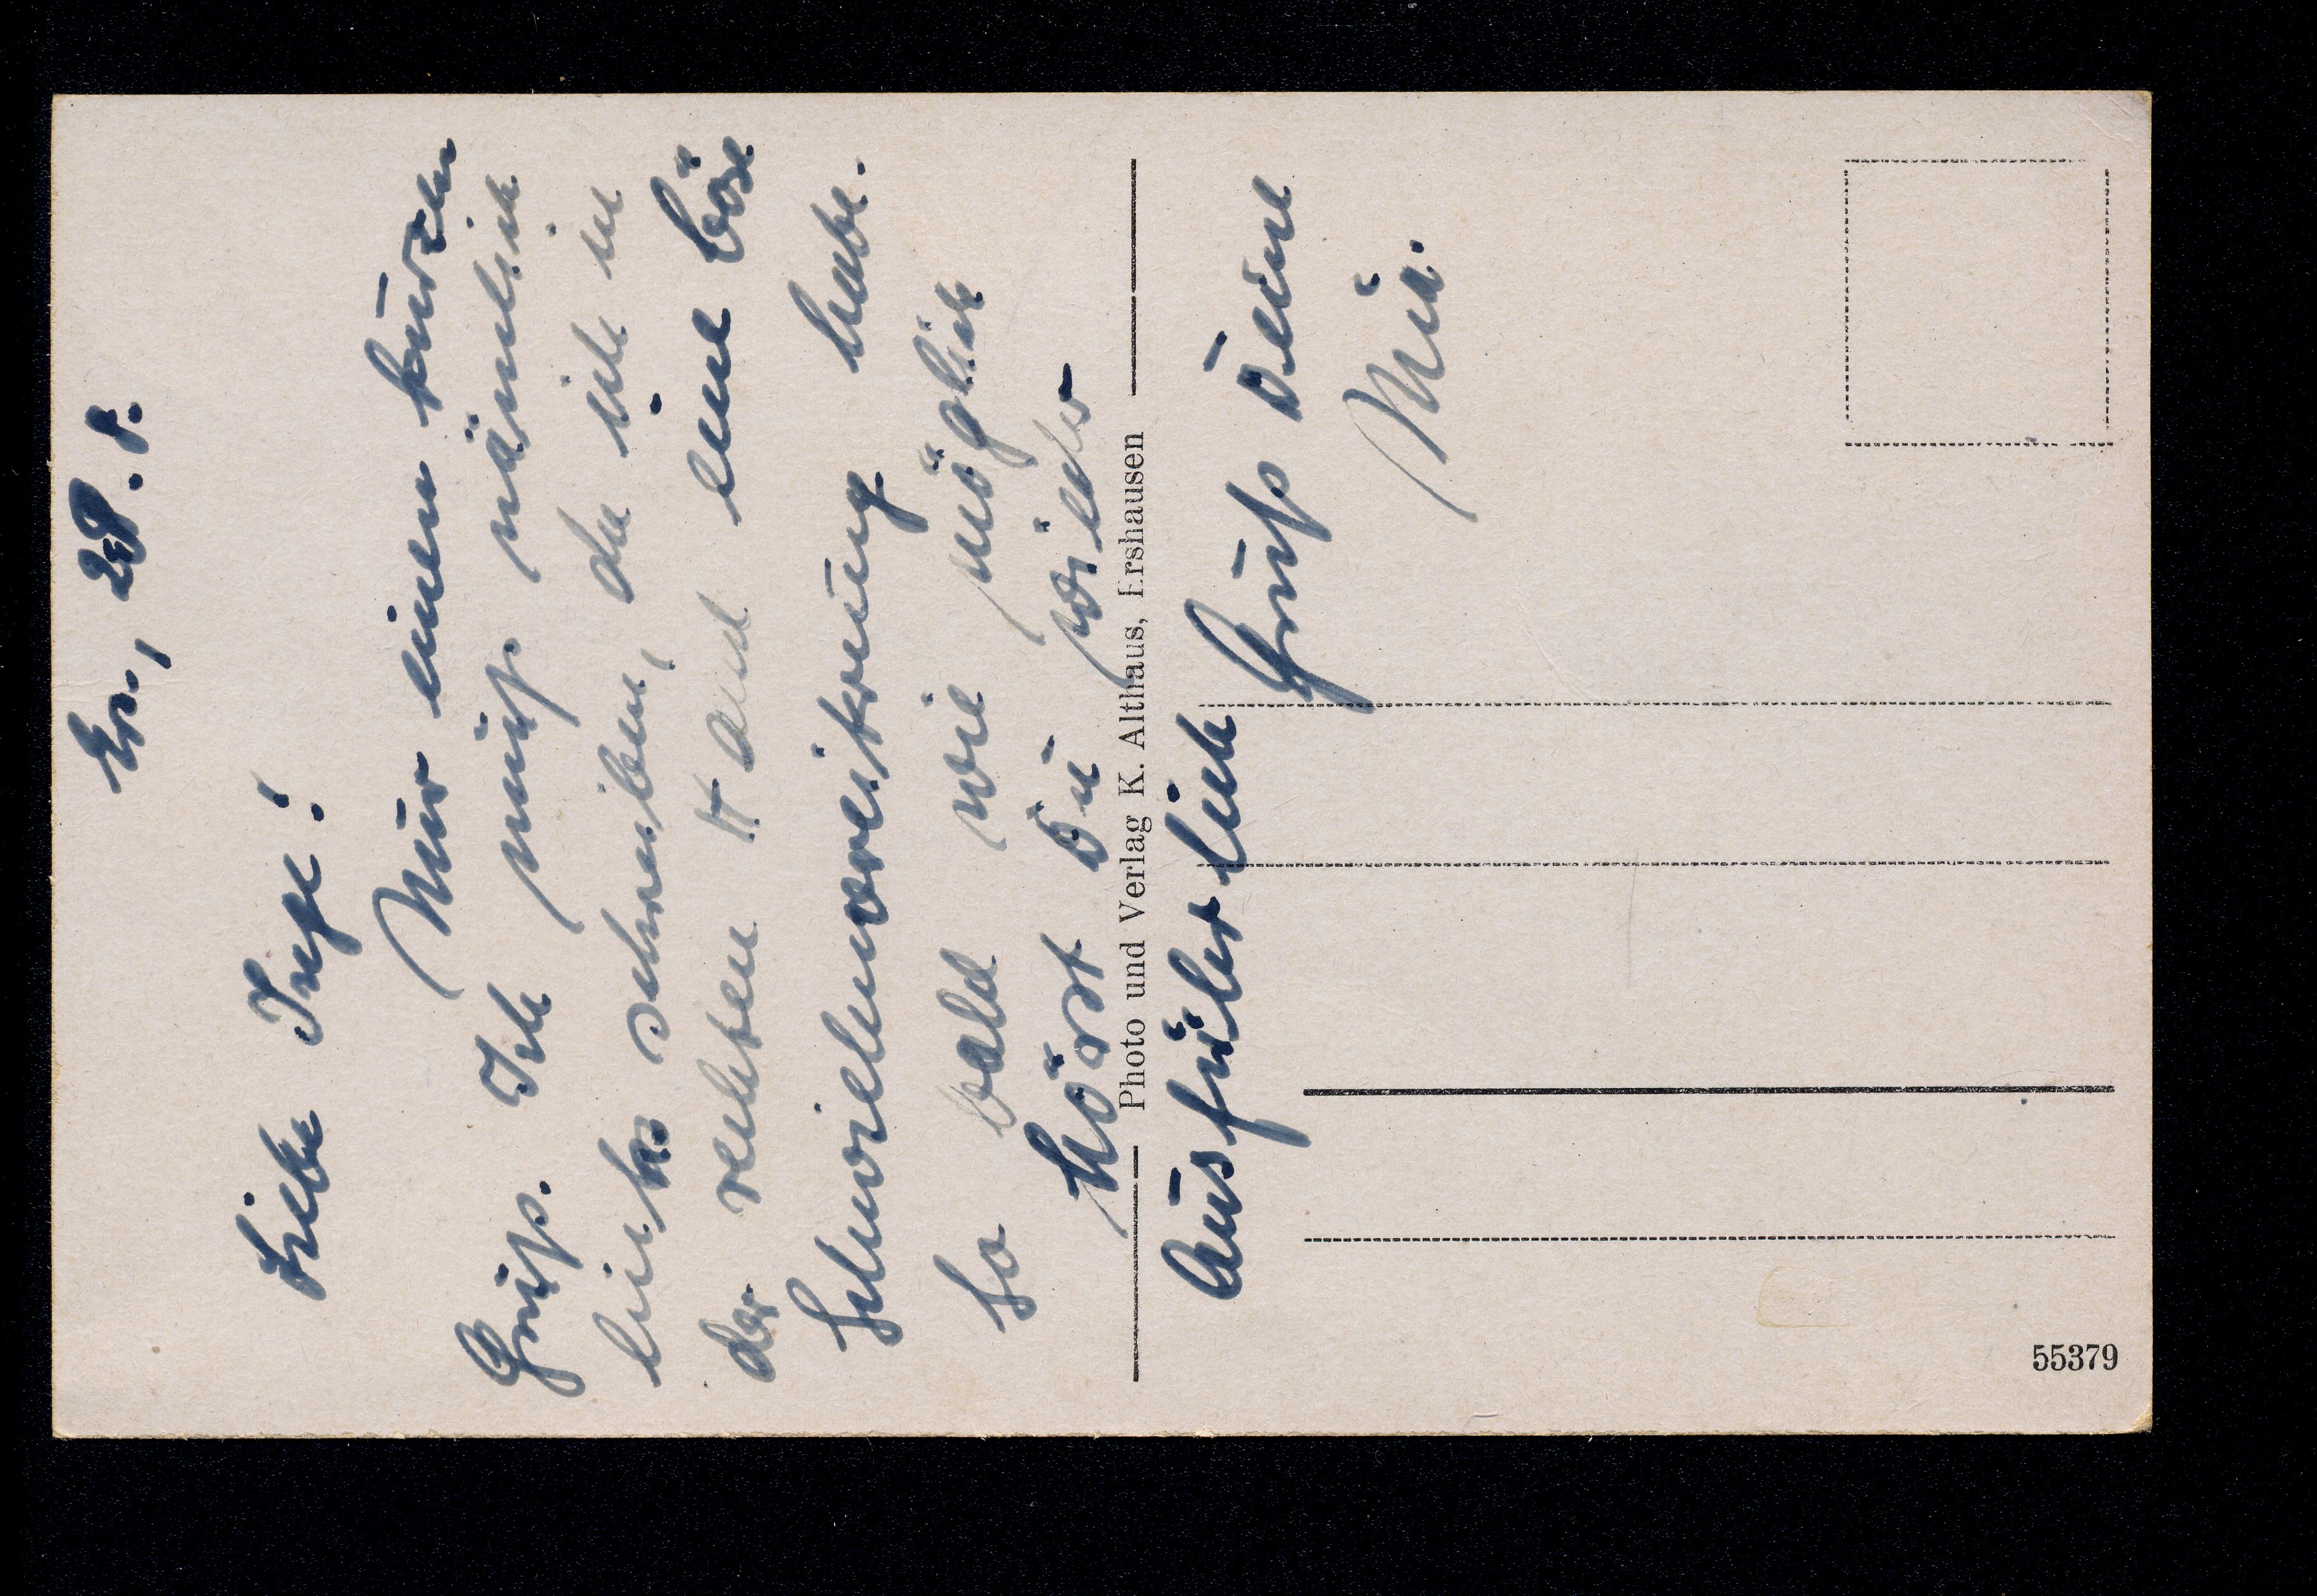 Er., 28. 8.
Liebe Inge!
Nur einen kurzen
Gruß. Ich muß nämlich
links schreiben, da ich in
der rechten Hand eine böse
Sehnenvereiterung habe.
So bald wie möglich
hörst Du wieder
Photo und Verlag K. Althaus, Ershausen
Ausführlich
Gruß Deine
55379